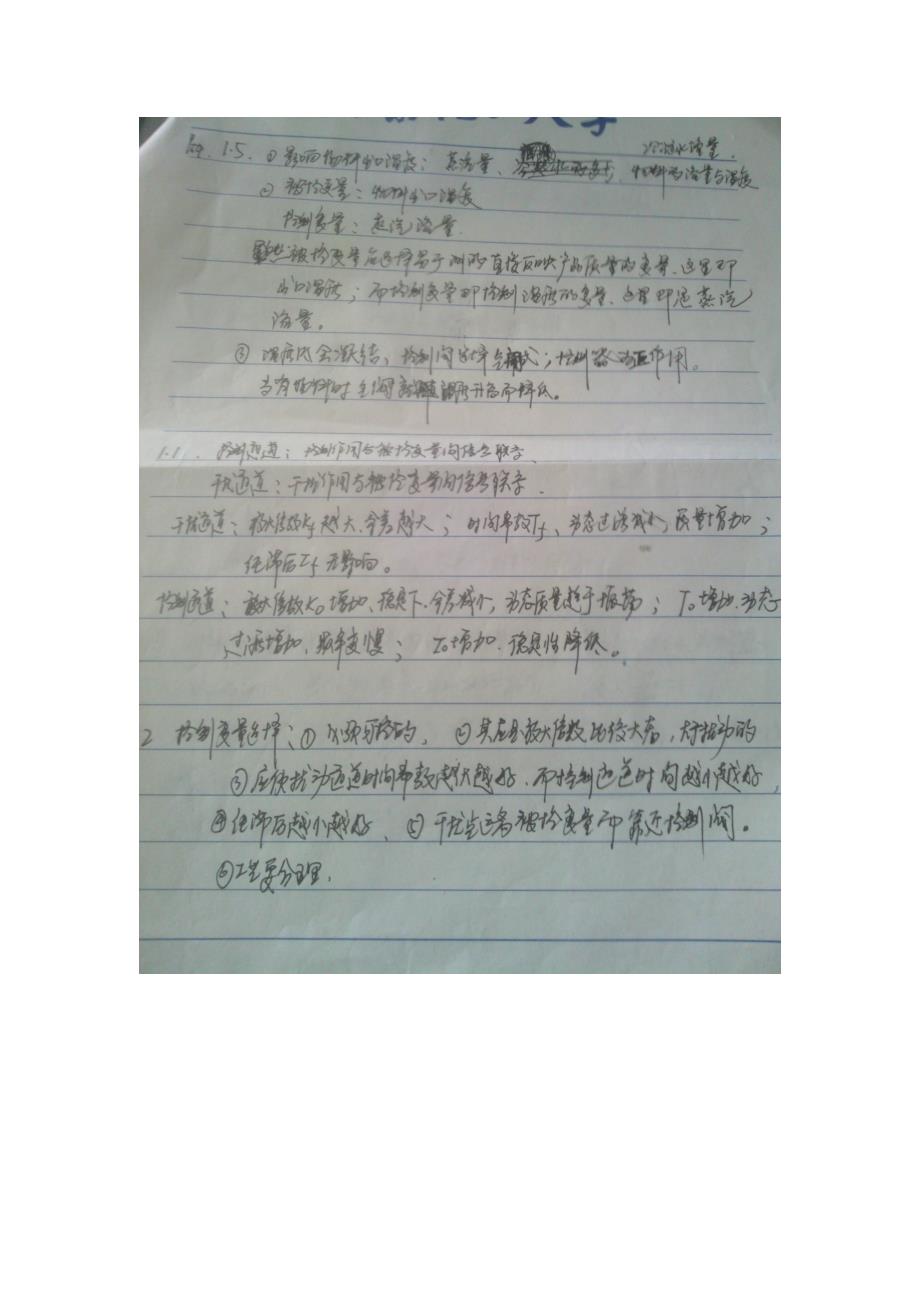 大学
1.5. ①影响物料出口温度：蒸汽量、 物料的流量与温度 冷凝水流量.
②被控变量：物料出口温度
控制变量：蒸汽流量.
被控变量应选择易于测的直接反映产品质量的变量.这里即
出口温度；而控制变量即控制温度的变量、这里即是蒸汽
流量。
③温度低会凝结、控制阀选择气 式；控制器 作用。
当 物料时 阀 升高而降低。
1.1. 控制通道：控制作用与被控变量间信号联系.
干扰通道：干扰作用与被控变量间信号联系.
干扰通道：放大倍数Kf越大、余差越大； 时间常数Tf、动态过渡减小，质量增加；
纯滞后τf无影响。
控制通道：放大倍数K0增加、稳定下.余差减小，动态质量趋于振荡； T0增加.动态
过渡增加、频率变慢； τ0增加.稳定性降低。
2 控制变量选择：①必须可控的， ②其应是放大倍数比较大者，大于扰动的
③应使扰动通道时间常数越大越好.而控制通道时间越小越好，
④纯滞后越小越好、 ⑤干扰点远离被控变量而靠近控制阀。
⑥工艺要合理.